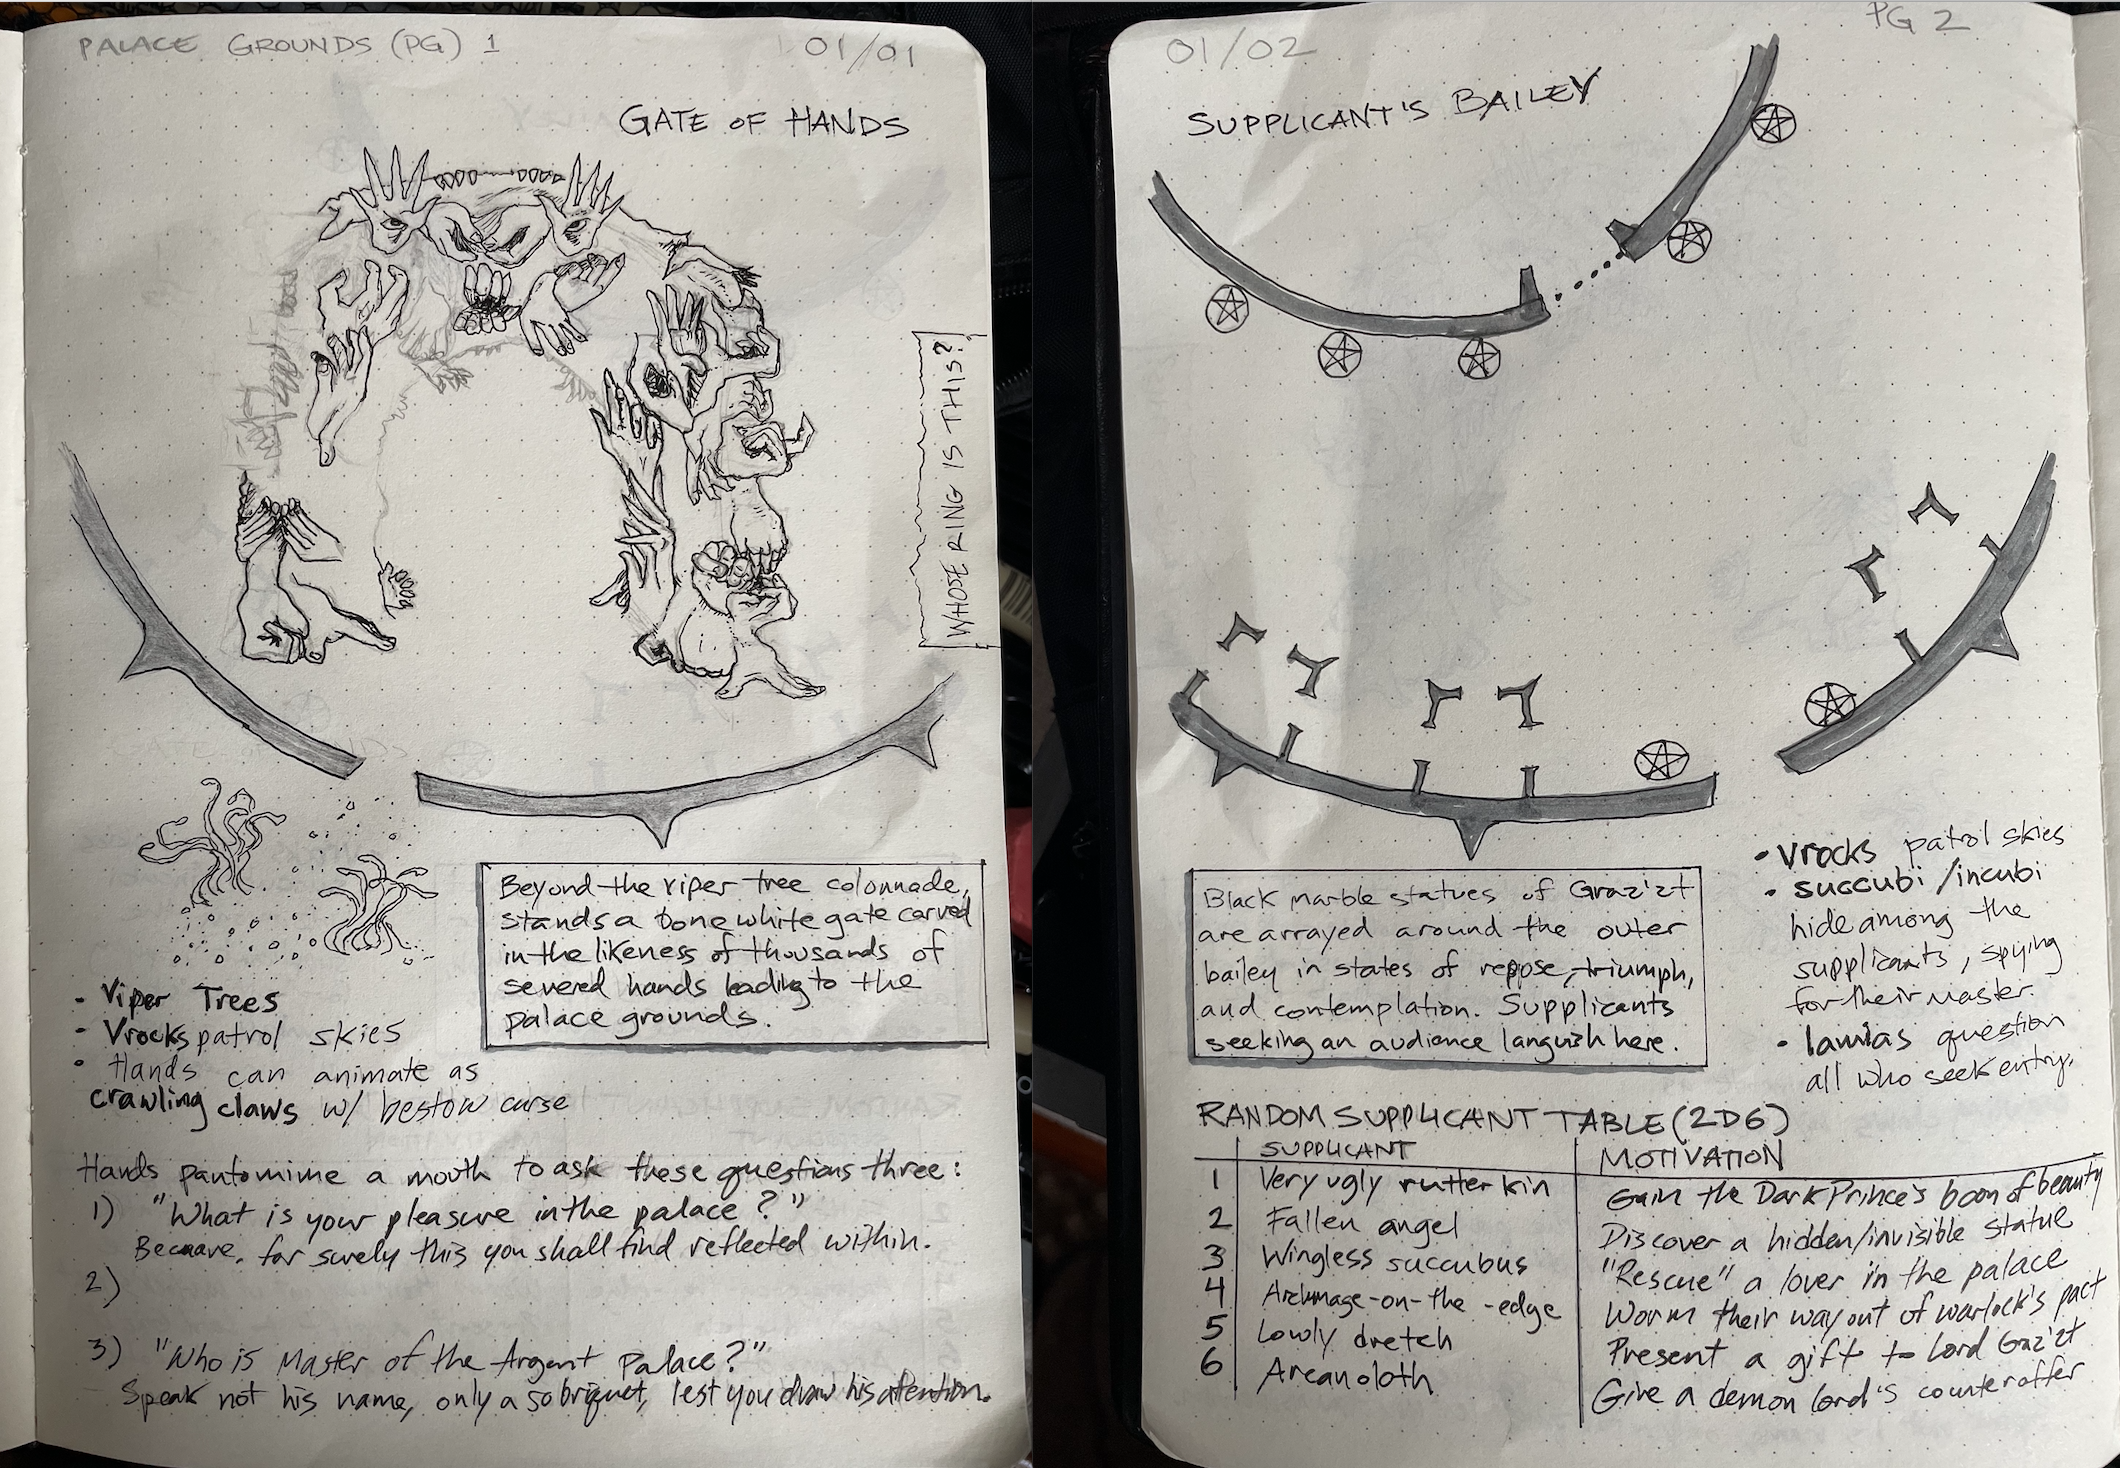 PALACE GROUNDS (PG) 1
01/01
GATE OF HANDS
WHOSE RING IS THIS?
Beyond the viper tree colonnade,
stands a bone white gate carved
in the likeness of thousands of
severed hands leading to the
palace grounds.
- Viper Trees
- Vrocks patrol skies
• Hands can animate as
crawling claws w/ bestow curse
Hands pantomime a mouth to ask these questions three:
1) "What is your pleasure in the palace?"
Beware, for surely this you shall find reflected within.
2)
3) "Who is Master of the Argent Palace?"
Speak not his name, only a sobriquet, lest you draw his attention.
01/02
PG 2
SUPPLICANT'S BAILEY
Black marble statues of Graz'zt
are arrayed around the outer
bailey in states of repose, triumph,
and contemplation. Supplicants
seeking an audience languish here.
• Vrocks patrol skies
• succubi/incubi
hide among the
supplicants, spying
for their master.
• lamias question
all who seek entry.
RANDOM SUPPLICANT TABLE (2D6)
SUPPLICANT MOTIVATION
1 Very ugly rutterkin Gain the Dark Prince's boon of beauty
2 Fallen angel Discover a hidden/invisible statue
3 Wingless succubus "Rescue" a lover in the palace
4 Archmage-on-the-edge Worm their way out of warlock's pact
5 Lowly dretch Present a gift to Lord Graz'zt
6 Arcanoloth Give a demon lord's counteroffer